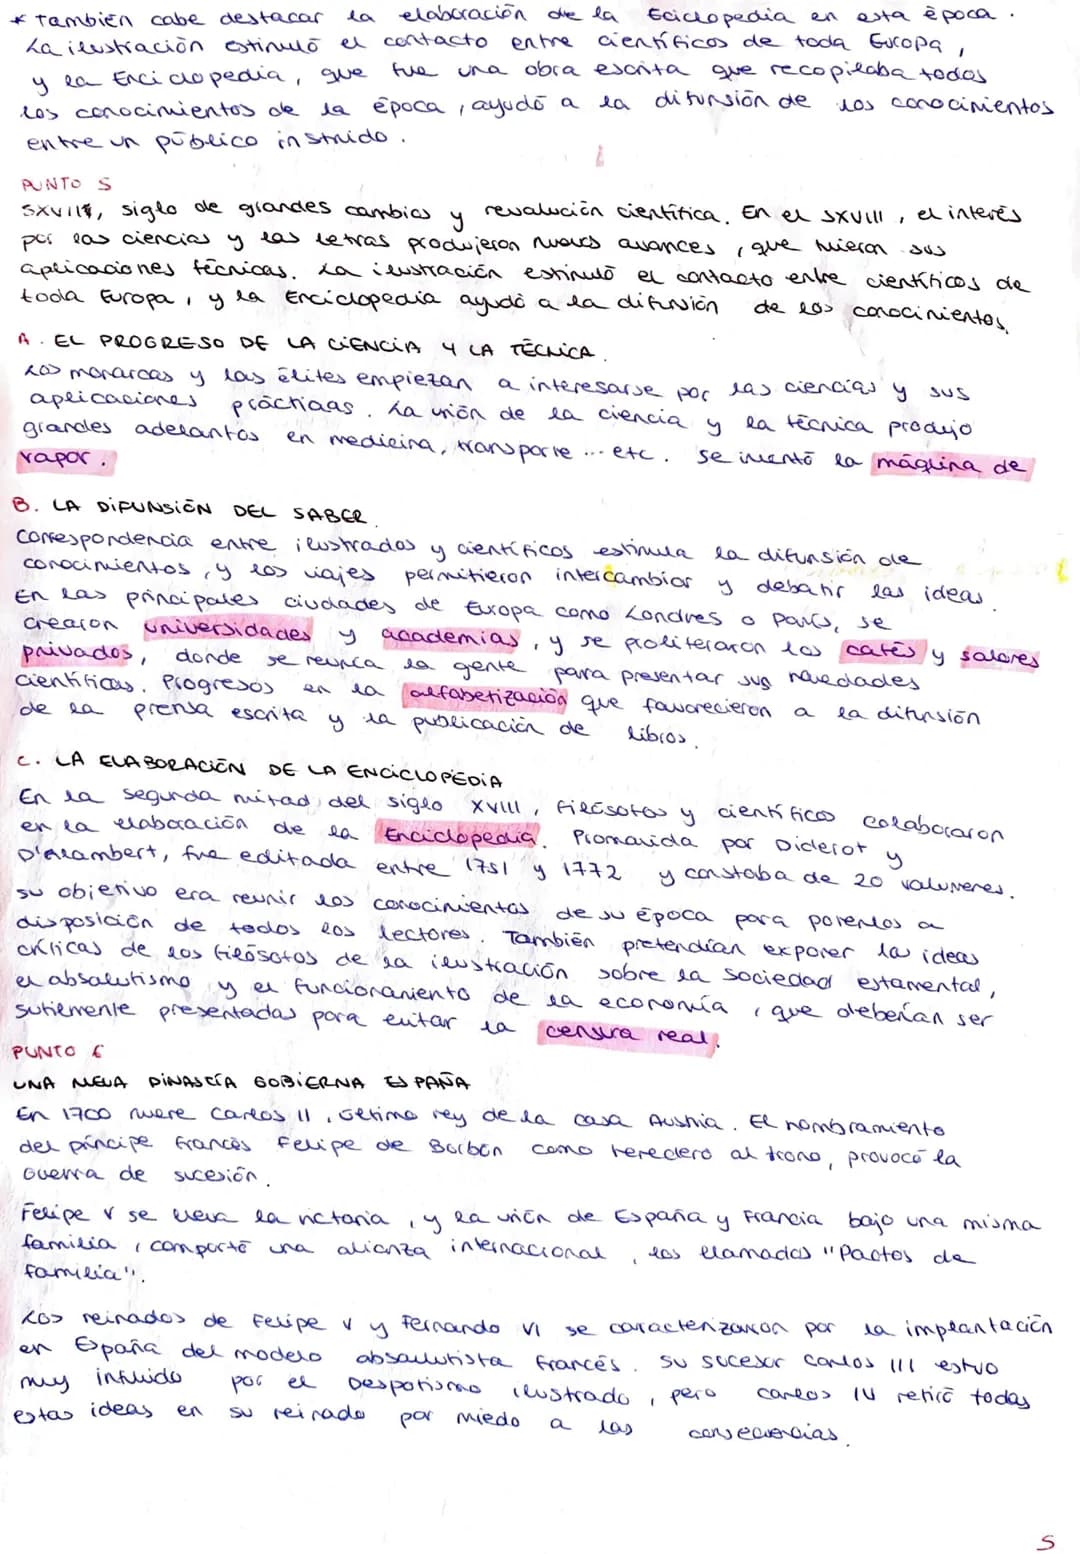 * También cabe destacar la elaboración de la Eciclopedia en esta época.
La ilustración estimuló el contacto entre científicos de toda Europa,
y la Enciclopedia, que fue una obra escrita que recopilaba todos
los conocimientos de la época, ayudó a la difunsión de los conocimientos
entre un público instruido.
PUNTO 5
SXVIII, siglo de grandes cambios y revolución científica. En el SXVIII, el interés
por las ciencias y las letras produjeron nuevos avances, que tuvieron sus
aplicaciones técnicas. La ilustración estimuló el contacto entre científicos de
toda Europa, y la Enciclopedia ayudó a la difusión de los conocimientos.
A. EL PROGRESO DE LA CIENCIA Y LA TÉCNICA.
Los monarcas y las élites empiezan a interesarse por las ciencias y sus
aplicaciones prácticas. La unión de la ciencia y la técnica produjo
grandes adelantos en medicina, transporte ... etc. Se inventó la máquina de
vapor.
B. LA DIFUNSIÓN DEL SABER.
Correspondencia entre ilustrados y científicos estimula la difunsión de
conocimientos, y los viajes permitieron intercambiar y debatir las ideas.
En las principales ciudades de Europa como Londres o París, se
crearon universidades y academias, y se proliferaron los cafés y salones
privados, donde se reunía la gente para presentar sus novedades
científicas. Progresos en la alfabetización que favorecieron a la difunsión
de la prensa escrita y la publicación de libros.
C. LA ELABORACIÓN DE LA ENCICLOPEDIA
En la segunda mitad del siglo XVIII, filósofos y científicos colaboraron
en la elaboración de la Enciclopedia. Promovida por Diderot y
D'Alambert, fue editada entre 1751 y 1772 y constaba de 20 volúmenes.
su objetivo era reunir los conocimientos de su época para ponerlos a
disposición de todos los lectores. También pretendían exponer las ideas
críticas de los filósofos de la ilustración sobre la sociedad estamental,
el absolutismo y el funcionamiento de la economía, que deberían ser
sutilmente presentadas para evitar la censura real.
PUNTO 6
UNA NUEVA DINASTÍA GOBIERNA ESPAÑA
En 1700 muere Carlos II, último rey de la casa Austria. El nombramiento
del príncipe francés Felipe de Borbón como heredero al trono, provocó la
Guerra de sucesión.
Felipe V se lleva la victoria, y la unión de España y Francia bajo una misma
familia, comportó una alianza internacional, los llamados "Pactos de
familia".
Los reinados de Felipe V y Fernando VI se caracterizaron por la implantación
en España del modelo absolutista francés. Su sucesor Carlos III estuvo
muy influido por el Despotismo ilustrado, pero Carlos IV retiró todas
estas ideas en su reinado por miedo a las consecuencias.
5